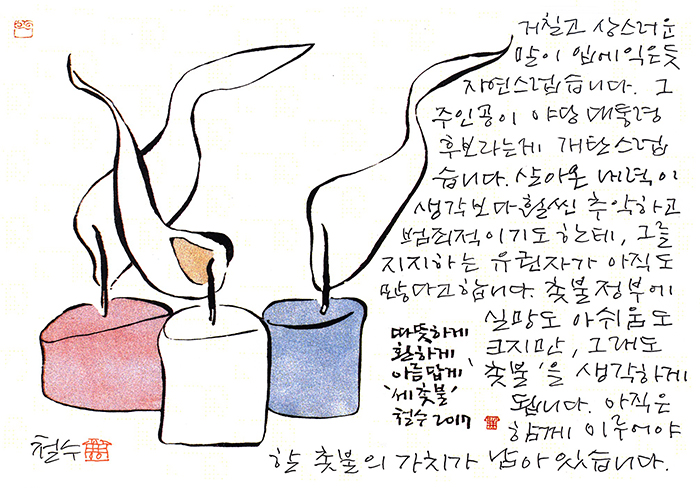 거칠고 상스러운
말이 입에 익은듯
자연스럽습니다. 그
주인공이 야당 대통령
후보라는게 개탄스럽
습니다. 살아온 내력이
생각보다 훨씬 추악하고
범죄적이기도 한테, 그를
지지하는 유권자가 아직도
많다고 합니다. 촛불정부에
실망도 아쉬움도
크지만, 그래도
'촛불'을 생각하게
됩니다. 아직은
함께 이루어야
할 촛불의 가치가 남아 있습니다.
따뜻하게
환하게
아름답게
'세 촛불'
철수 2017
철수